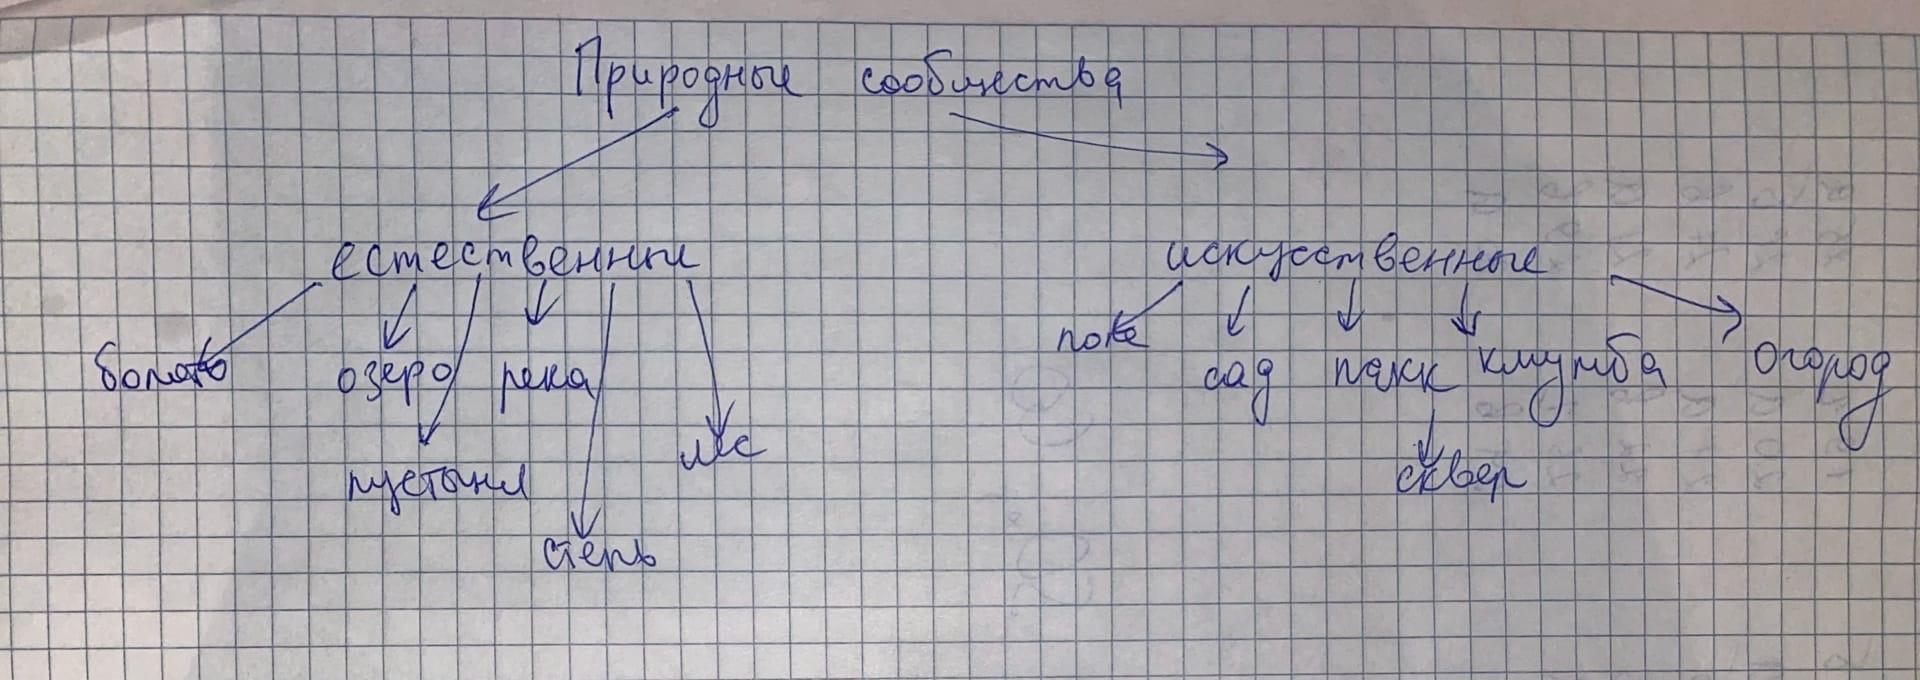 Природные сообщества
естественные искусственные
болото озеро река поле сад парк клумба огород
пустыня лес сквер
степь